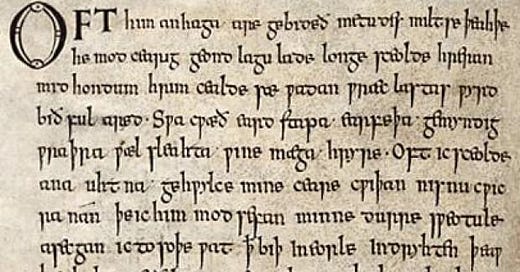 OFT him anhaga are gebideð metudes miltse þeah þe
he mod cearig geond lagu lade longe sceolde hreran
mid hondum hrim cealde sæ ƿadan ƿræc lastas ƿyrd
bið ful aræd · Sƿa cƿæð eard stapa · earfeþa · gemyndig
ƿraþra ƿæl sleahta · ƿine mæga · hryre · Oft ic sceolde
ana · uhtna · gehƿylce mine ceare cƿiþan nis nu cƿic
ra nan þe ic him mod sefan minne durre sƿeotule
asecgan ic to soþe ƿat ꝥ biþ in eorle indryhten þeaƿ